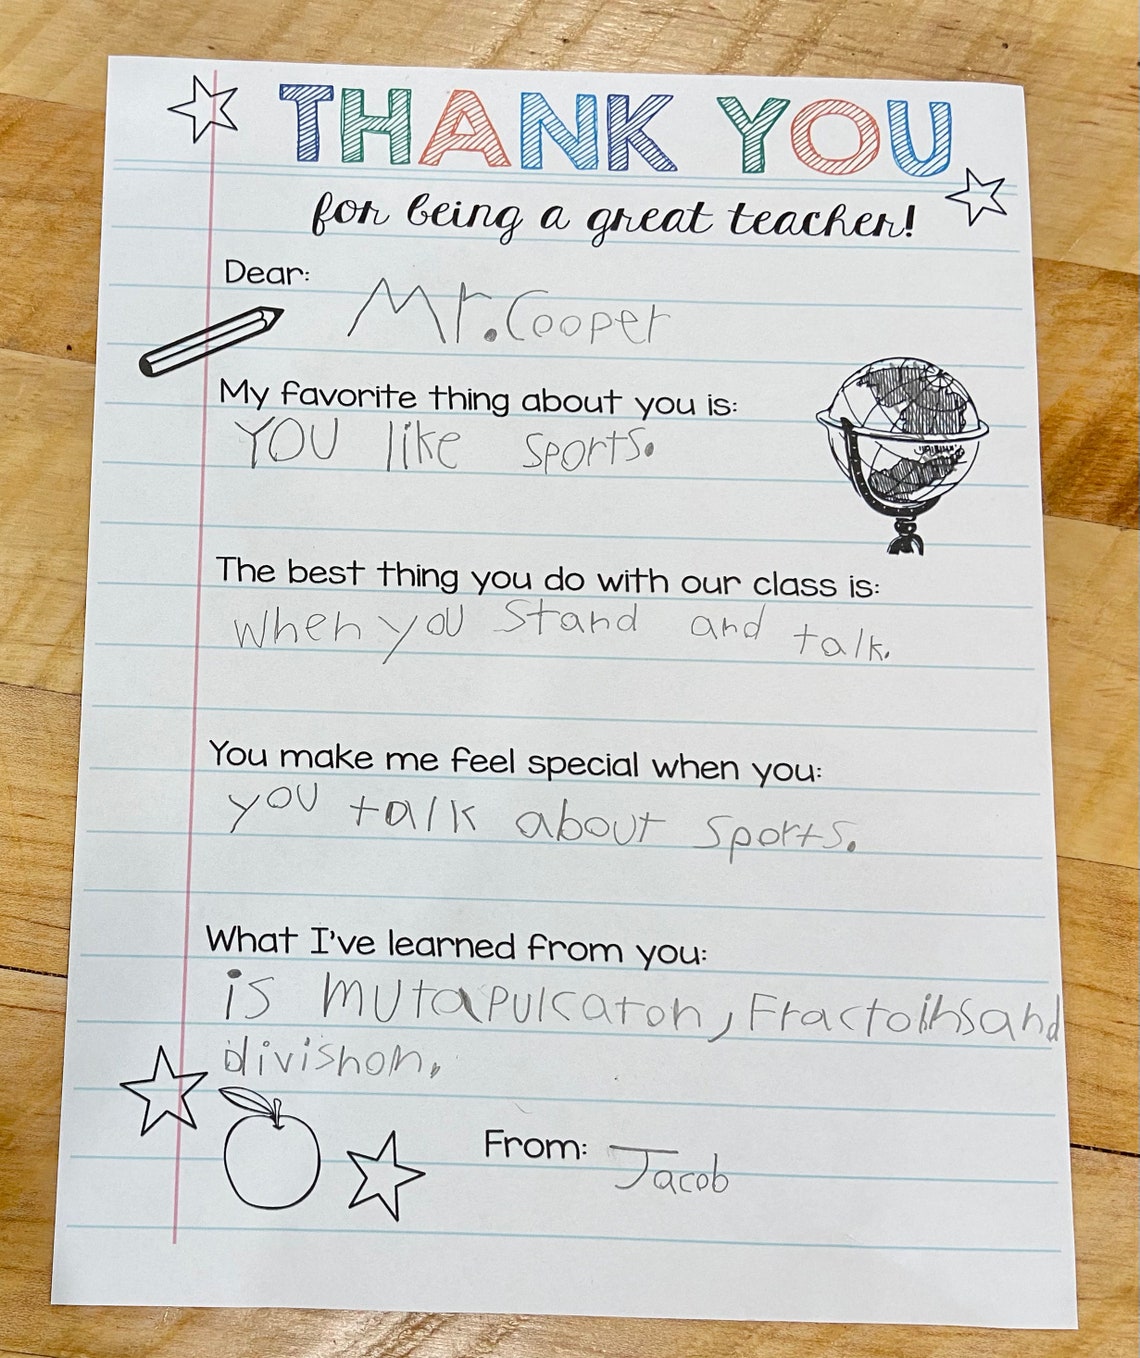 THANK YOU
for being a great teacher!
Dear:
Mr. Cooper
My favorite thing about you is:
YOU like sports.
The best thing you do with our class is:
when you Stand and talk.
You make me feel special when you:
you talk about sports.
What I've learned from you:
is mutapulcaton, Fractoihs and
divishon.
From: Jacob